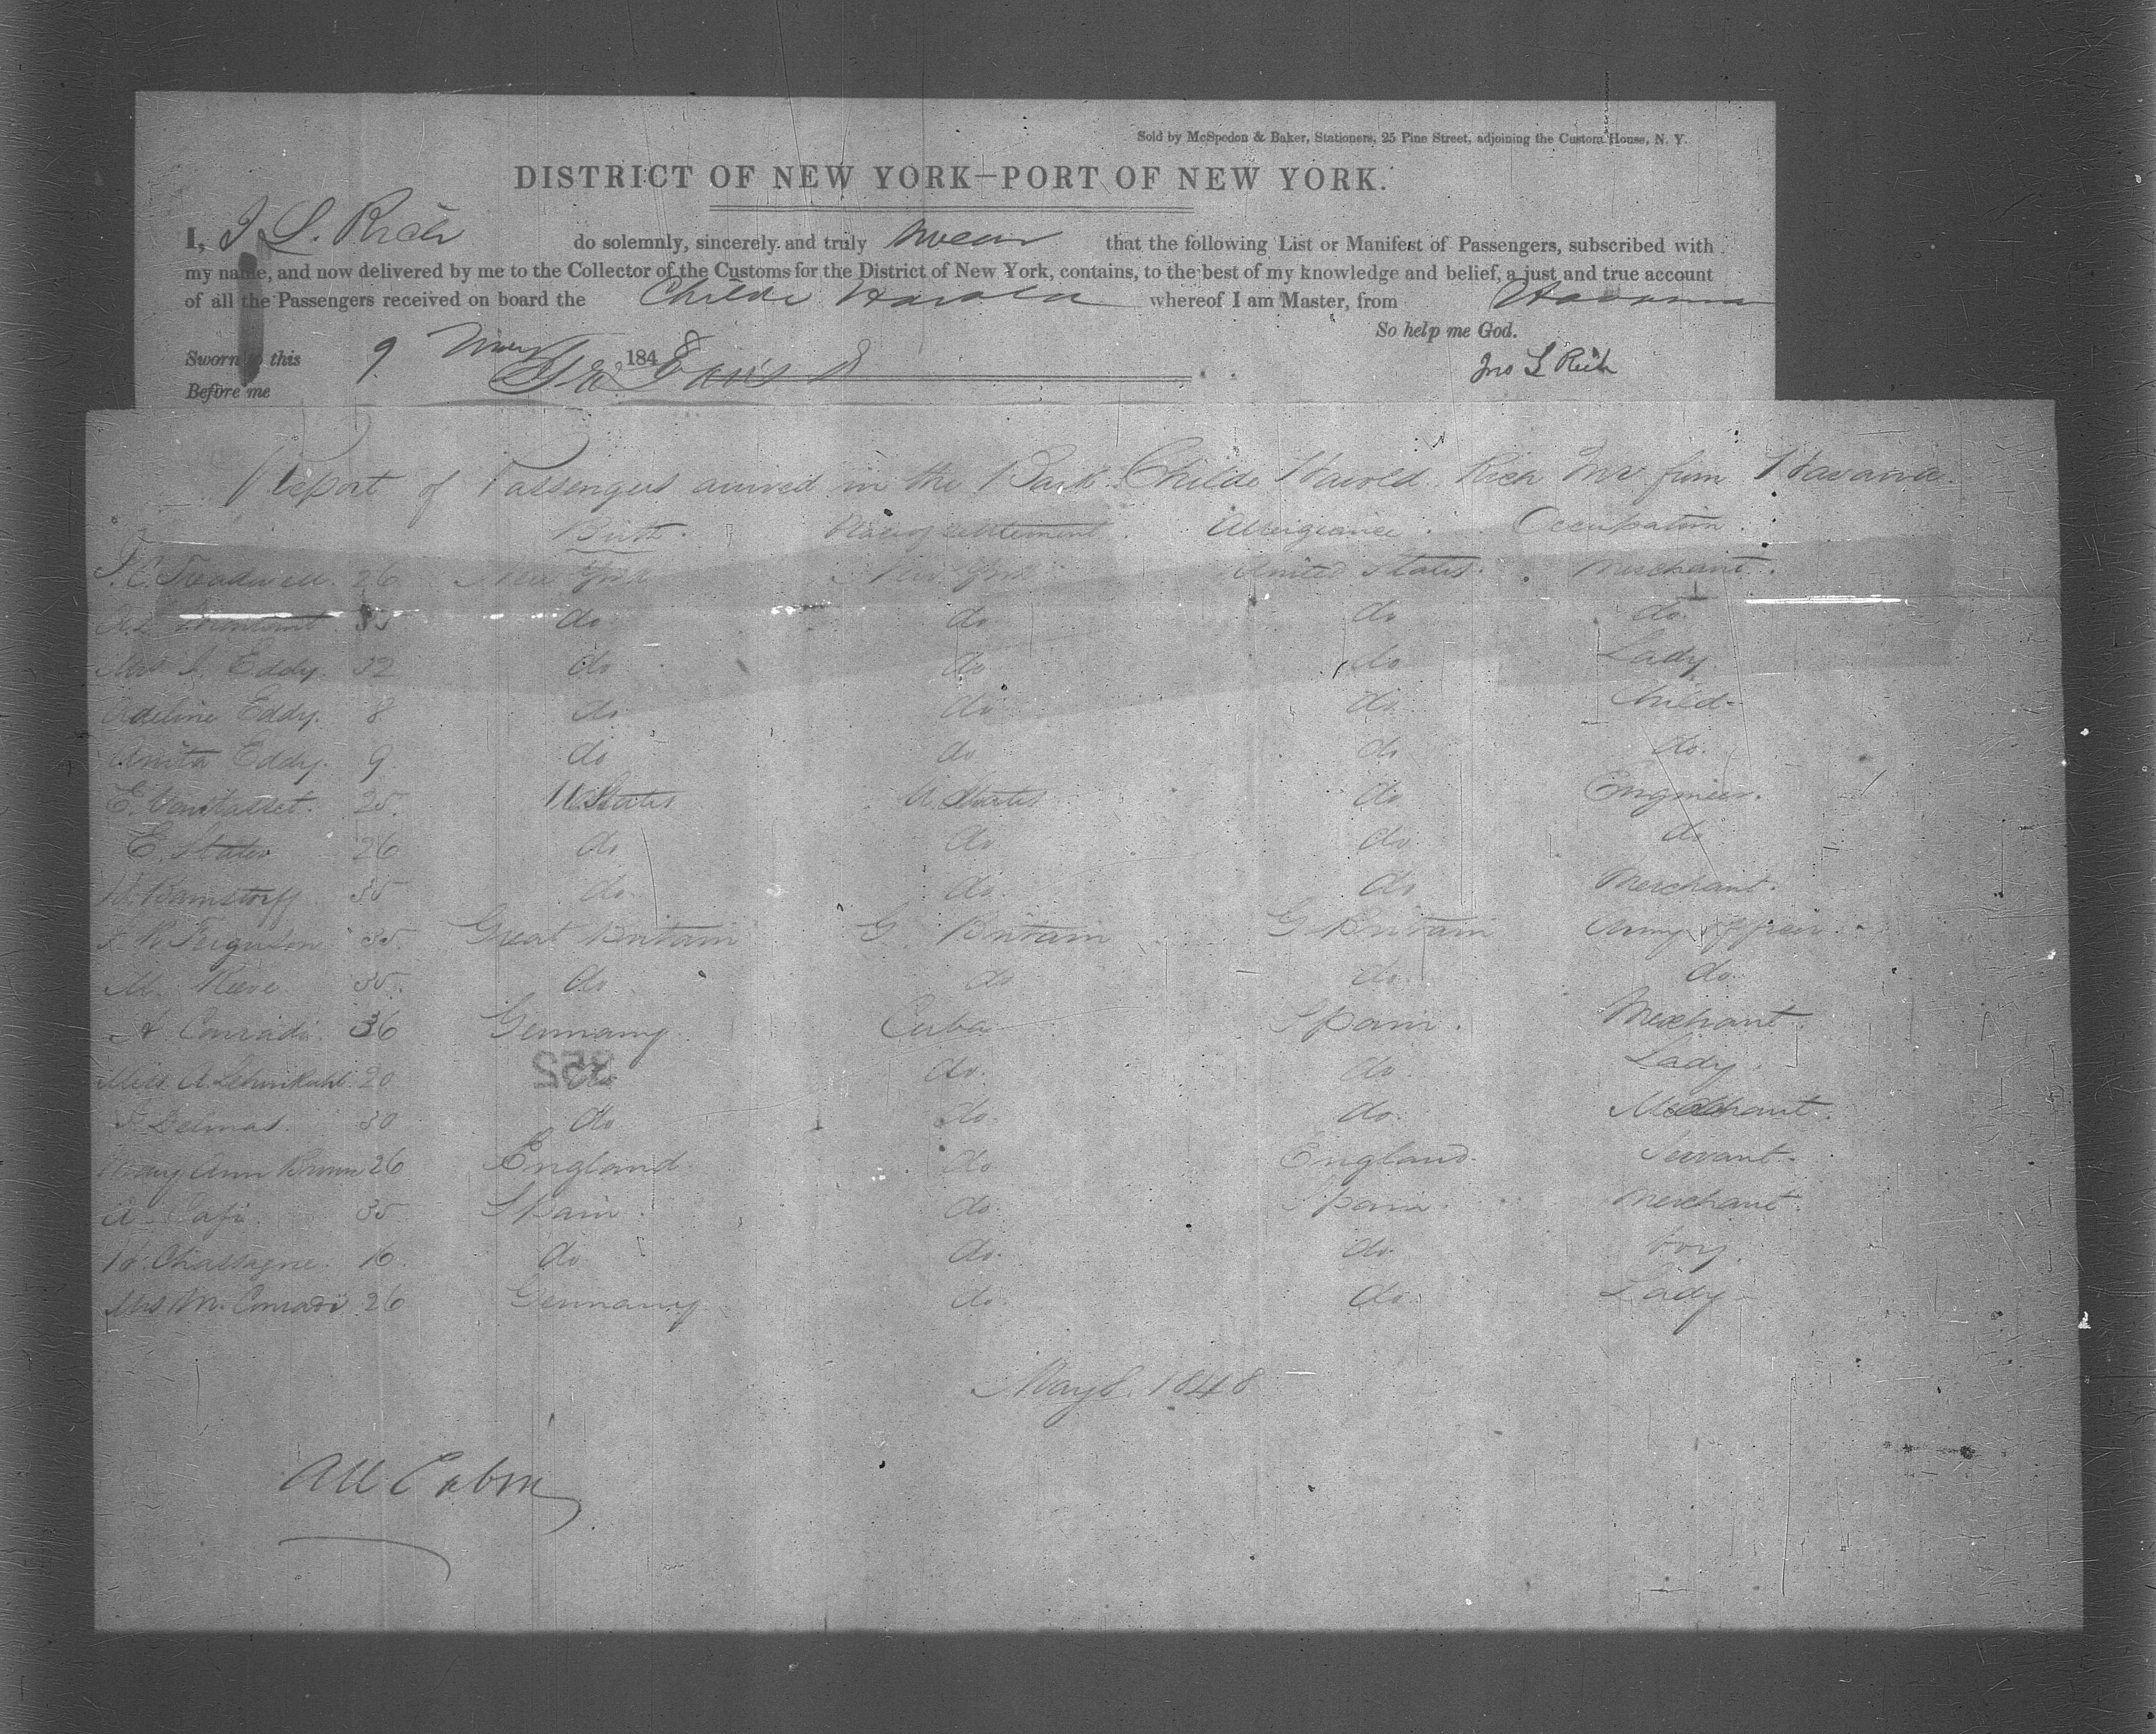 Sold by McSpedon & Baker, Stationers, 25 Pine Street, adjoining the Custom House, N. Y.
DISTRICT OF NEW YORK—PORT OF NEW YORK.
I, J L. Rich do solemnly, sincerely and truly swear that the following List or Manifest of Passengers, subscribed with
my name, and now delivered by me to the Collector of the Customs for the District of New York, contains, to the best of my knowledge and belief, a just and true account
of all the Passengers received on board the Childe Harold whereof I am Master, from Havana
So help me God.
Sworn to this 9 May 1848
Jno L Rich
Before me
Report of Passengers arrived in the Bark Childe Harold Rich Mr from Havana
Birth. Place of settlement. Alleigiance. Occupation.
F. C. Treadwell. 26 New York New York United States. Merchant.
35 do do do do.
Mrs Eddy. 32 do do do Lady
Adeline Eddy. 8 do do do Child
Anita Eddy. 9. do do do do.
E. Vantasset. 25. U States U States do Engineer.
E. Slater 26 do do do do
Bamstorff 35 do. do. do Merchant.
R Ferguson 35. Great Britain G. Britain G Britain Army officer.
M. Reeve 35. do do do. do.
A Conradi. 36 Germany. Cuba Spain. Merchant.
Miss A Lehmkuhl. 20 do do. do. Lady.
Delmas. 30 do do. do. Merchant.
Mary Ann Brown 26 England do England. Servant.
A 35 Spain. do. Spain. Merchant.
Chassagne. 16. do do. do. boy.
Mrs M. Conradi 26 Germany do. do. Lady
352
May 8. 1848
All Cabin